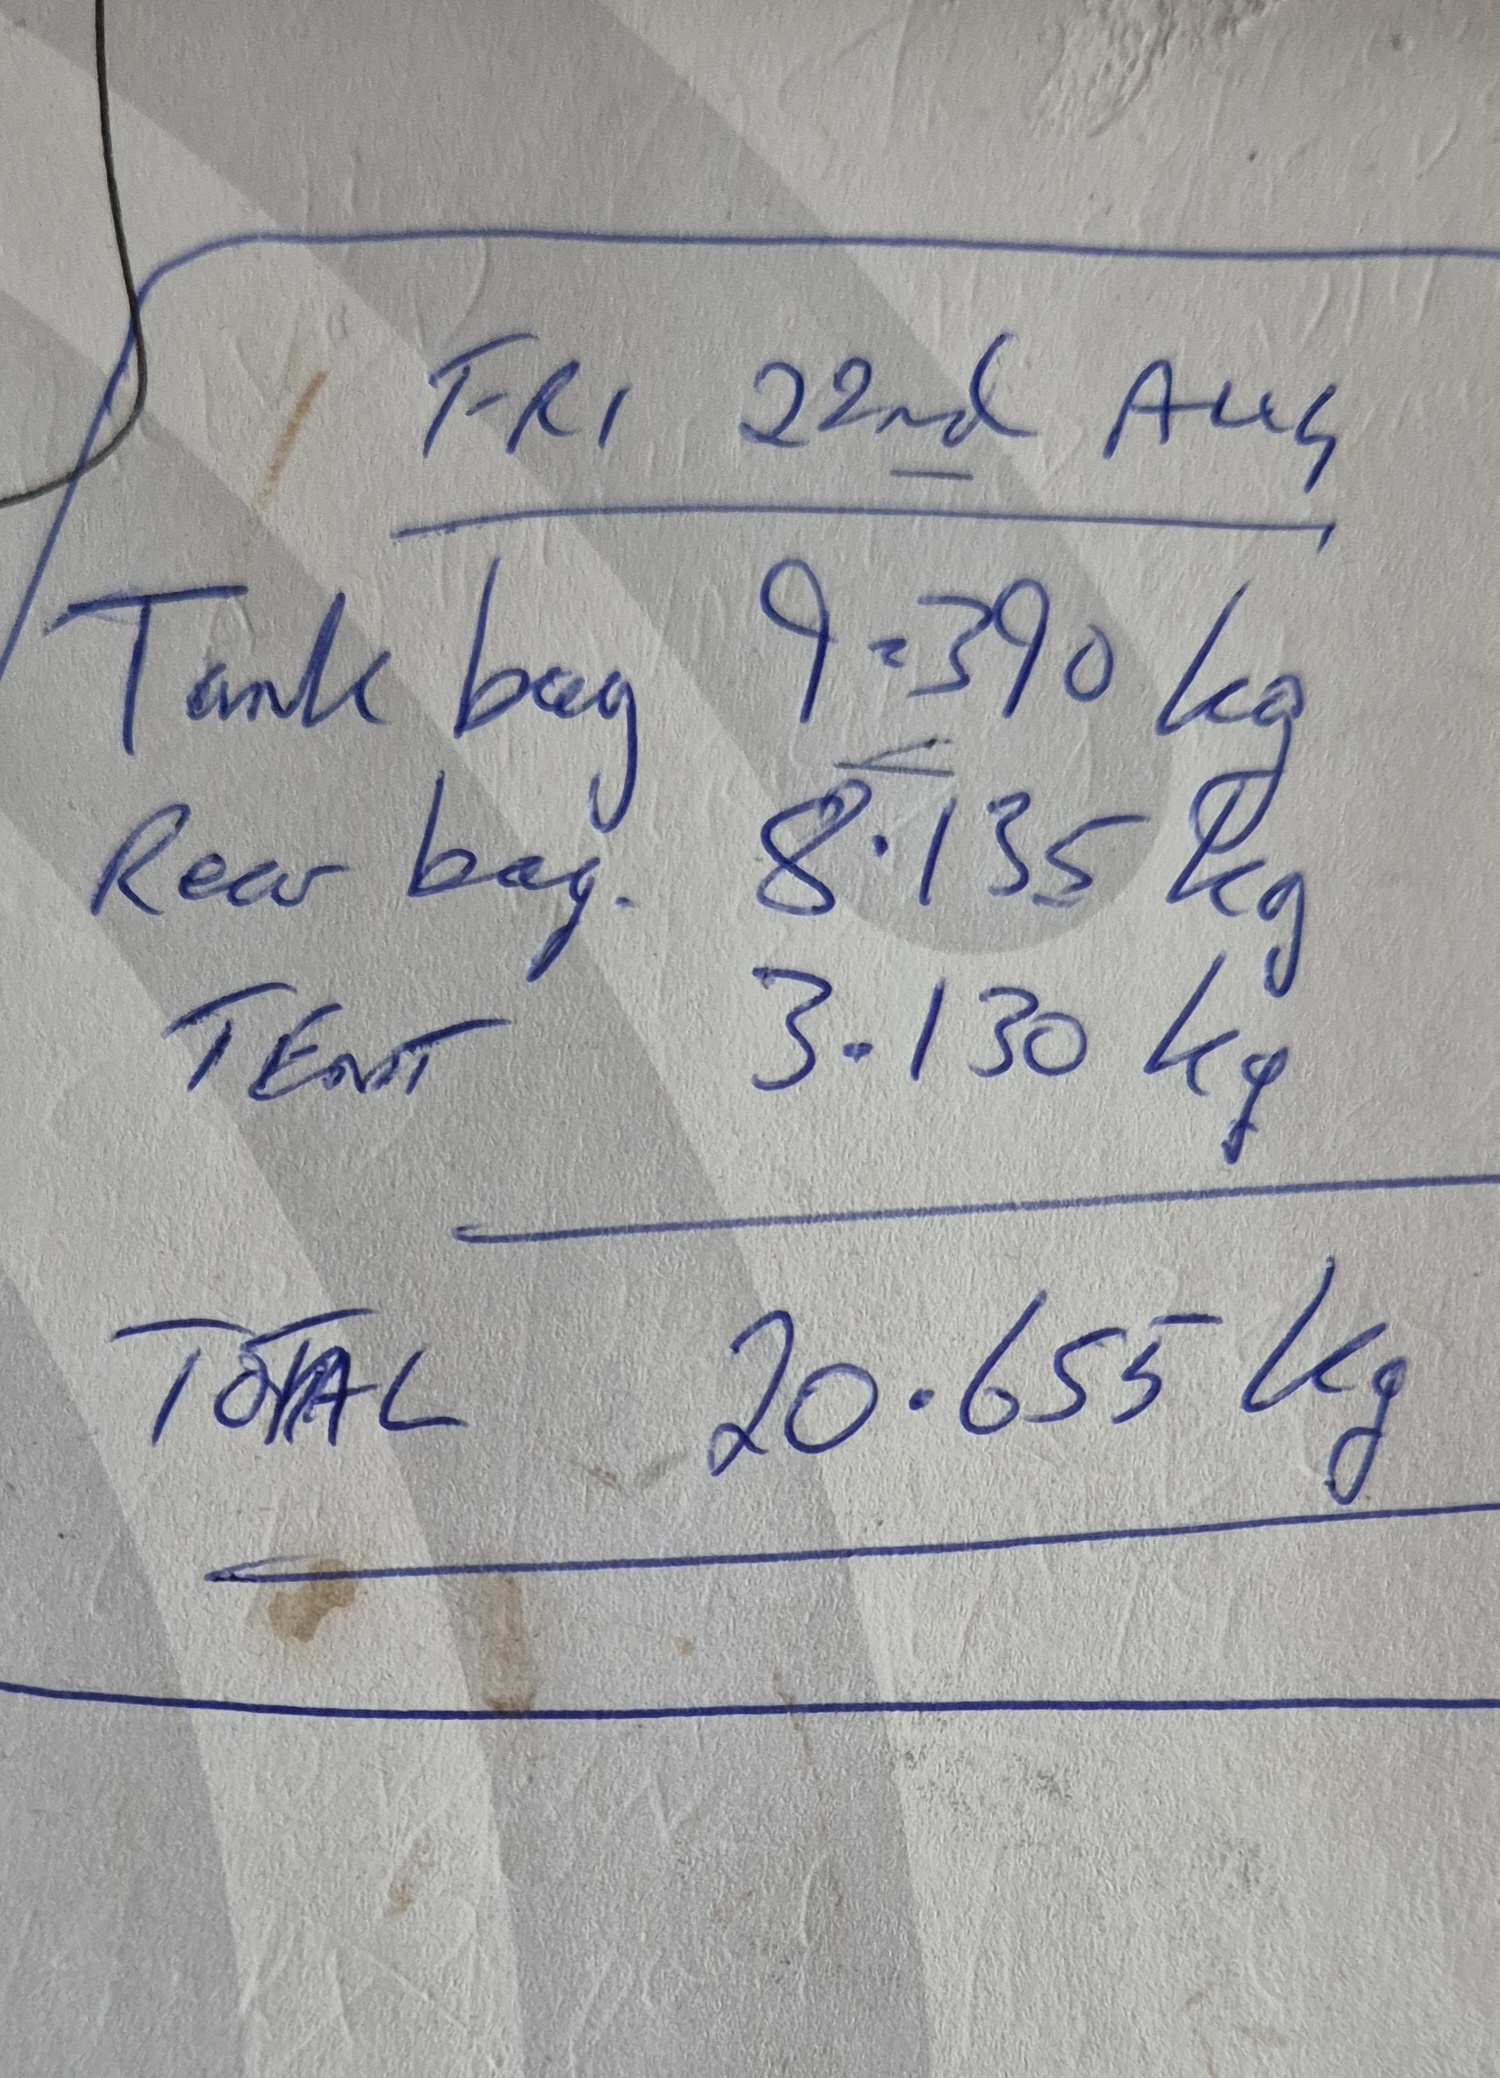 FRI 22nd Aug
Tank bag 9.390 kg
Rear bag. 8.135 kg
TENT 3.130 kg
TOTAL 20.655 kg